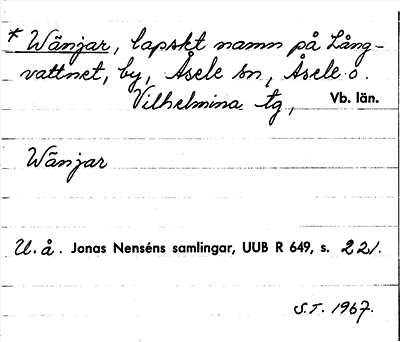 * Wänjar, lapskt namn på Lång-
vattnet, by, Åsele sn, Åsele o.
Vilhelmina tg, Vb. län.
Wänjar
U. å. Jonas Nenséns samlingar, UUB R 649, s. 221.
S.T. 1967.